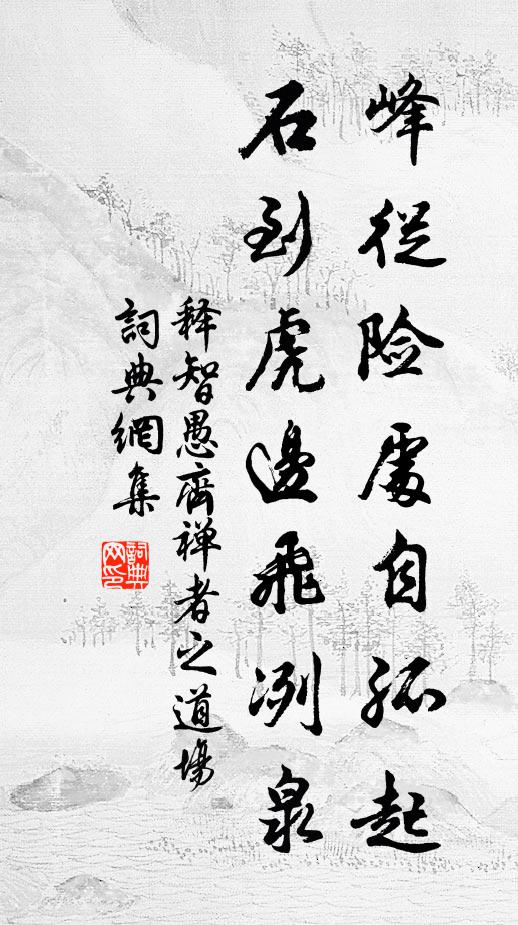 峰從险處自孤起
石到虎邊飛冽泉
释智愚齊禅者之道場
詞典網集
詞典网印